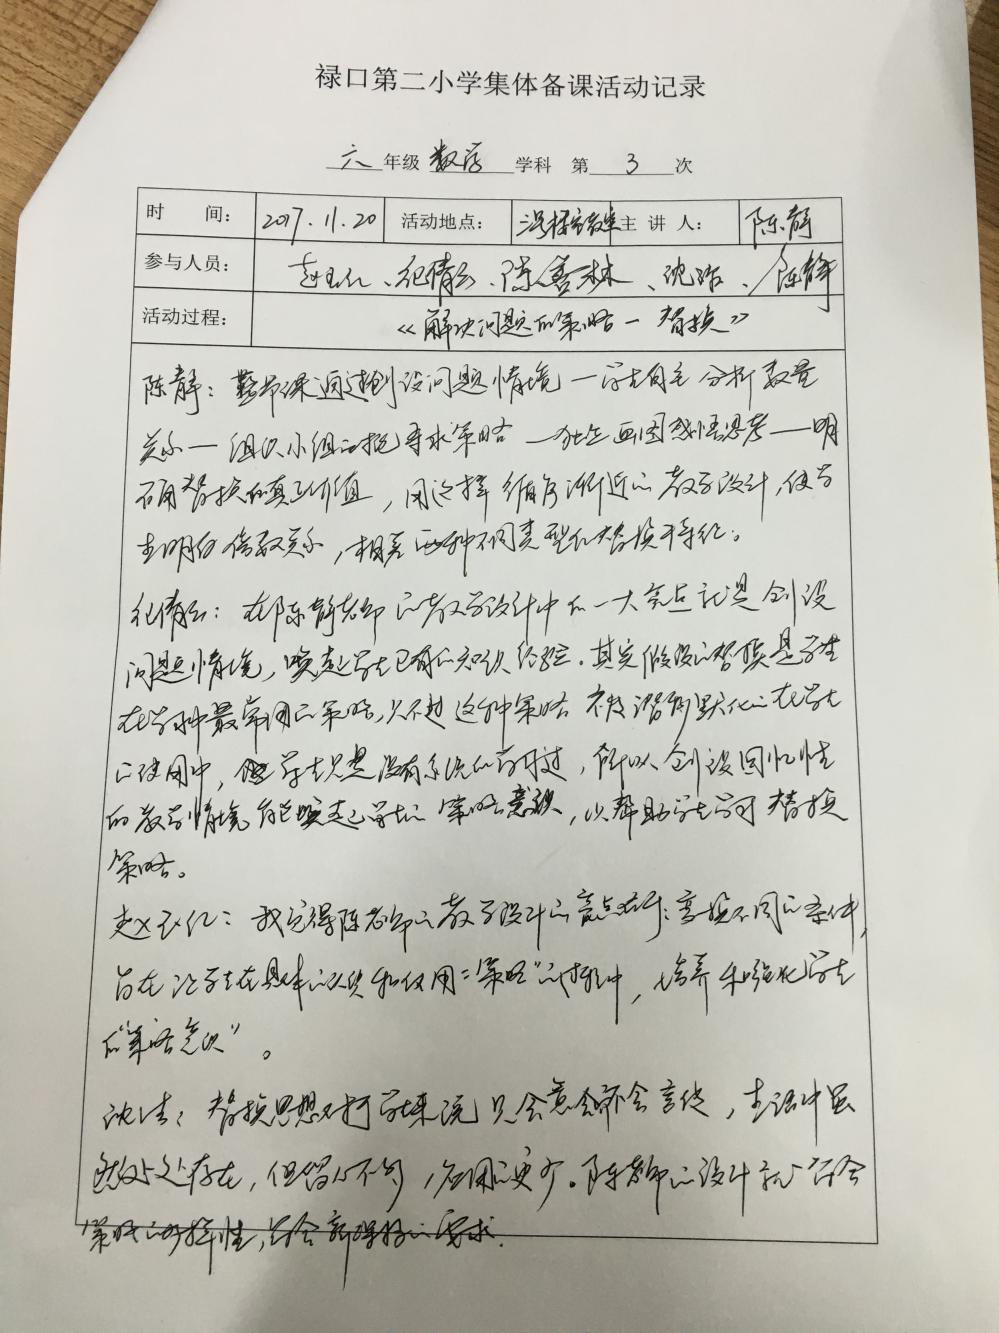 禄口第二小学集体备课活动记录
六 年级 数学 学科 第 3 次
时 间: 2017.11.20 活动地点: 主 讲 人: 陈静
参与人员: 赵玉红、纪倩云、陈善林、沈洁、陈静
活动过程: 《解决问题的策略—替换》
陈静：整节课通过创设问题情境—学生自主分析数量
关系—组织小组 寻求策略—独立画图感悟思考—明
确替换的真正价值，用这样循序渐近的教学设计，使学
生明白倍数关系，相差两种不同类型的替换
纪倩云：在陈静老师的教学设计中的一大亮点就是创设
问题情境，唤起学生已有的知识经验。其实 的替换是学生
在学习中最常用的策略，只不过这种策略被潜移默化的在学生
的使用中，但学生只是没有系统的学习过，所以创设回忆性
的教学情境能唤起学生的策略意识，以帮助学生学习替换
策略。
赵玉红：我觉得陈老师的教学设计的亮点在于：变换不同的条件，
旨在让学生在具体的认识和使用“策略”的过程中，培养和强化学生
的“策略意识”。
沈洁：替换思想对于学生来说只会意会不会言传，生活中虽
然处处存在，但 不够，应用的更少。陈老师的设计 符合
策略的 性，符合新课标的要求.